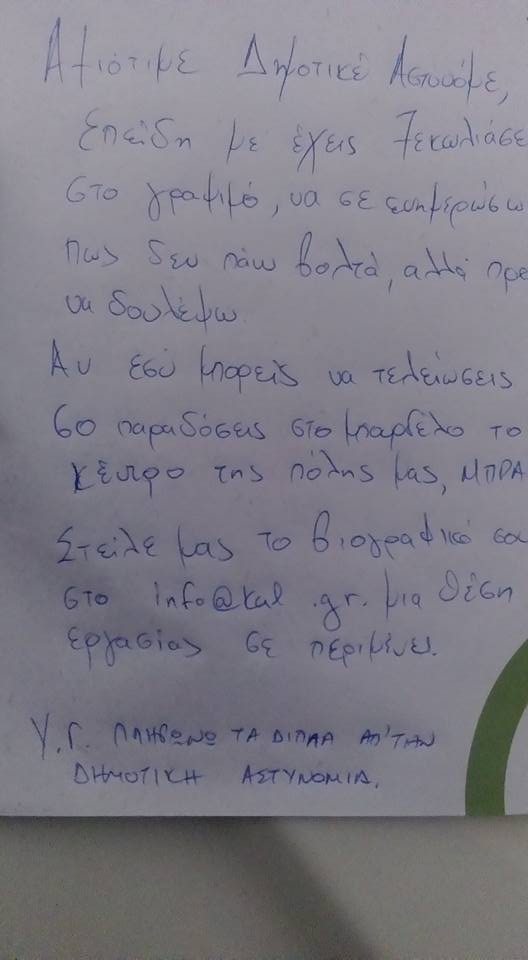 Αξιότιμε Δημοτικέ Αστυνόμε,
Επειδή με έχεις ξεκωλιάσε
στο γραψιμό, να σε ενημερώσω
πως δεν πάω βολτά, αλλά πρε
να δουλέψω.
Αν εσύ μπορείς να τελειώσεις
60 παραδόσεις στο μπαρδέλο το
κέντρο της πόλης μας, ΜΠΡΑ
Στείλε μας το βιογραφικό σου
στο info@kal .gr. μια θέση
εργασίας σε περιμένει.
Υ.Γ. ΠΛΗΡΩΝΩ ΤΑ ΔΙΠΛΑ ΑΠ'ΤΗΝ
ΔΗΜΟΤΙΚΗ ΑΣΤΥΝΟΜΙΑ.